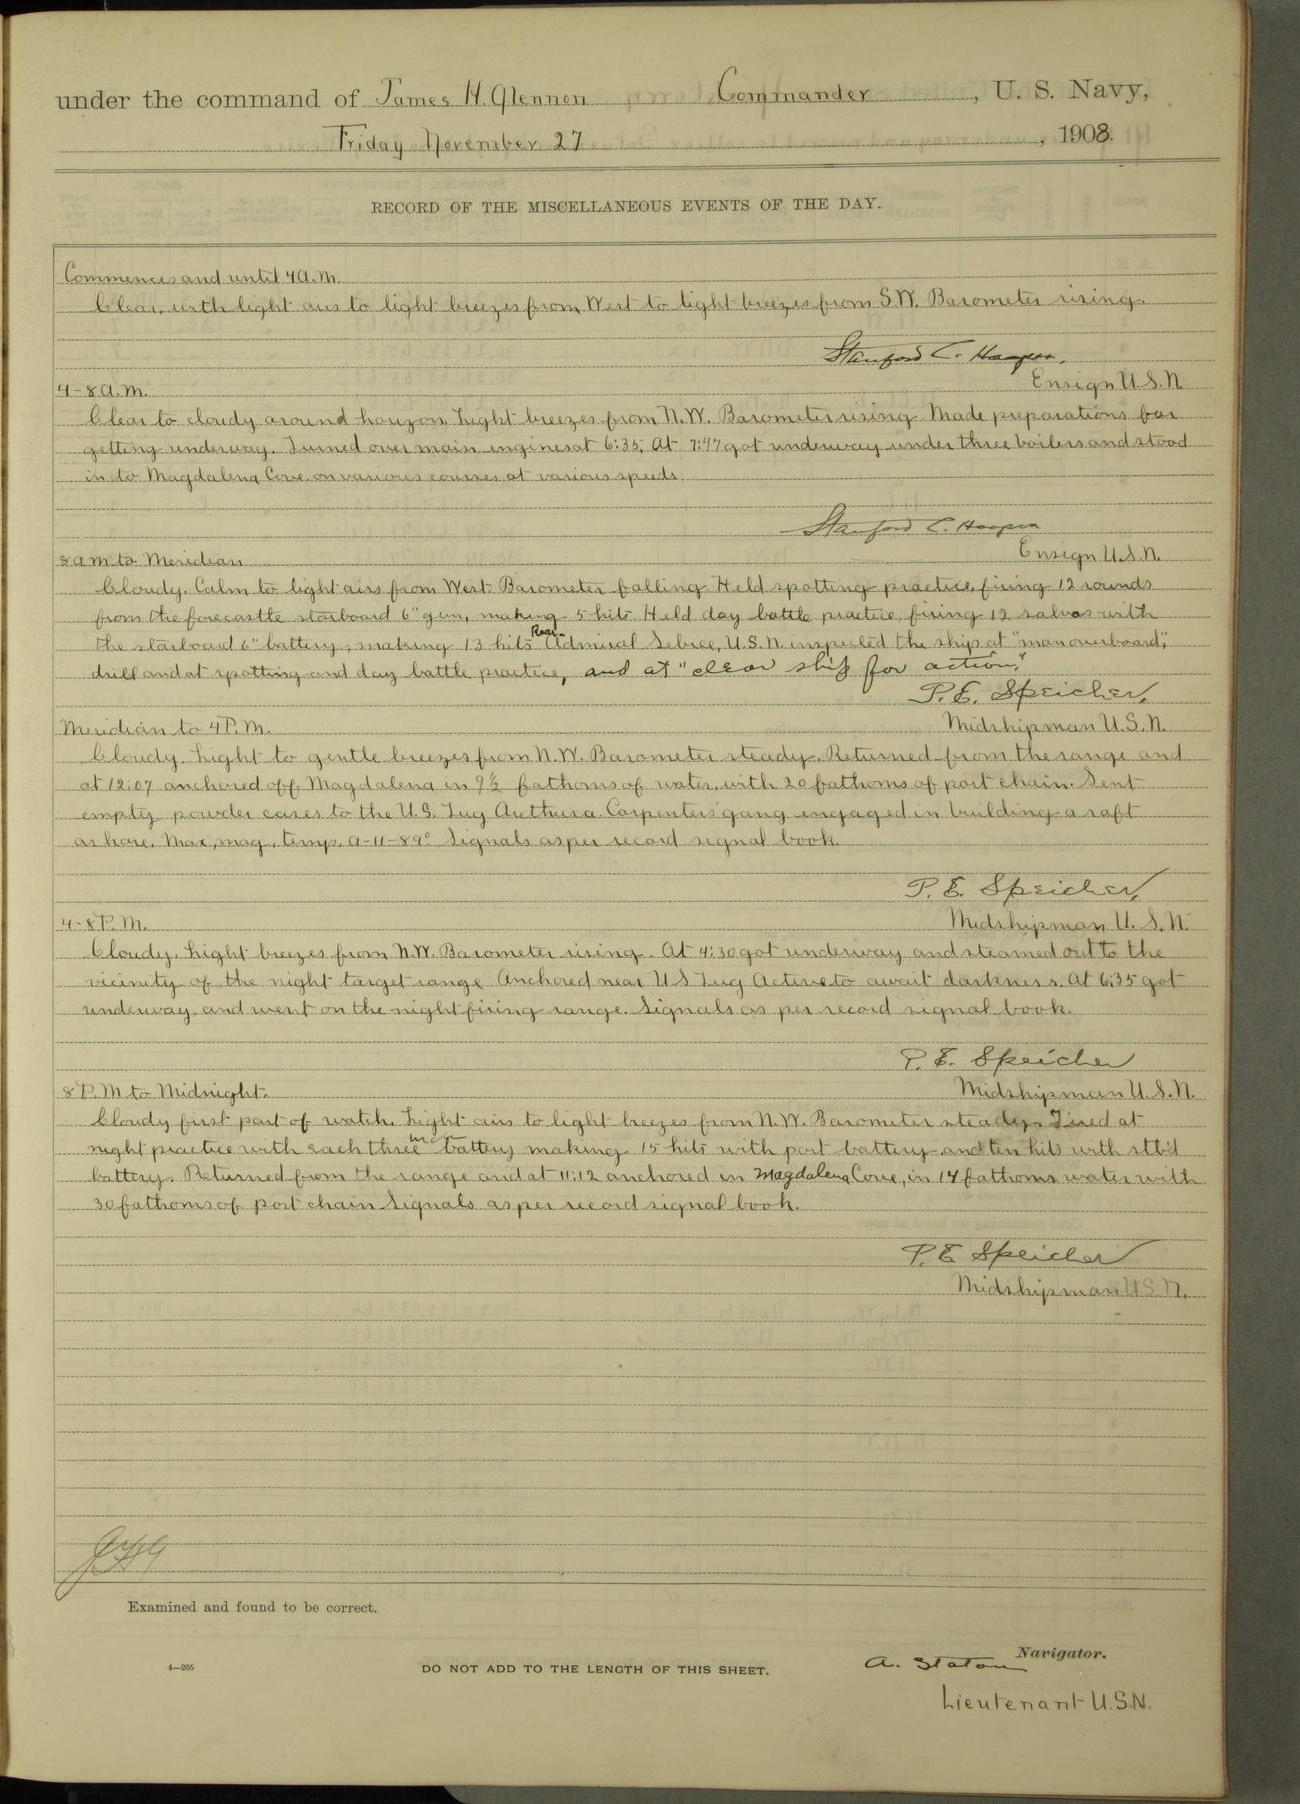 under the command of James H. Glennon Commander, U. S. Navy,
Friday November 27, 1908.
RECORD OF THE MISCELLANEOUS EVENTS OF THE DAY.
Commences and until 4 a.m.
Clear, with light airs to light breezes from West to light breezes from S.W. Barometer rising.
Stanford C. Hooper,
Ensign U.S.N.
4-8 a.m.
Clear to cloudy around horizon. Light breezes from N.W. Barometer rising. Made preparations for
getting underway. Turned over main engines at 6:35. At 7:47 got underway under three boilers and stood
in to Magdalena Cove on various courses at various speeds.
Stanford C. Hooper
Ensign U.S.N.
8 a m to Meridian
Cloudy. Calm to light airs from West. Barometer falling. Held spotting practice, firing 12 rounds
from the forecastle starboard 6" gun, making 5 hits. Held day battle practice firing 12 salvos with
the starboard 6" battery, making 13 hits. Rear-Admiral Sebree, U.S.N. inspected the ship at "man overboard",
drill and at spotting and day battle practice, and at "clear ship for action."
P. E. Speicher,
Midshipman U.S.N.
Meridian to 4 P.M.
Cloudy. Light to gentle breezes from N.W. Barometer steady. Returned from the range and
at 12:07 anchored off Magdalena in 9½ fathoms of water, with 20 fathoms of port chain. Sent
empty powder cases to the U.S. Tug Arethusa. Carpenters' gang engaged in building a raft
ashore. Max, mag. temp. A-11-89° Signals as per record signal book.
P. E. Speicher,
Midshipman U.S.N.
4-8 P.M.
Cloudy. Light breezes from N.W. Barometer rising. At 4:30 got underway and steamed out to the
vicinity of the night target range. Anchored near U S Tug Active to await darkness. At 6:35 got
underway and went on the night firing range. Signals as per record signal book.
P. E. Speicher
Midshipman U.S.N.
8 P.M to Midnight.
Cloudy first part of watch. Light airs to light breezes from N.W. Barometer steady. Fired at
night practice with each three inch battery making 15 hits with port battery and ten hits with stb'd
battery. Returned from the range and at 11:12 anchored in Magdalena Cove, in 14 fathoms water with
30 fathoms of port chain. Signals as per record signal book.
P. E Speicher
Midshipman U.S.N.
JHG
Examined and found to be correct.
A. Staton Navigator.
4—265
DO NOT ADD TO THE LENGTH OF THIS SHEET.
Lieutenant U.S.N.